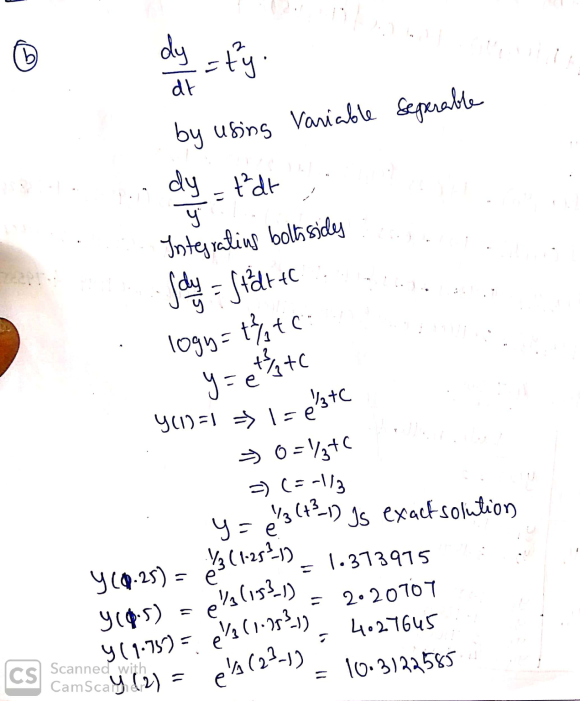 (b) dy/dt = t²y.
by using Variable Seperable
dy/y = t²dt
Integrating both sides
∫dy/y = ∫t²dt + C
logy = t³/3 + C
y = e^(t³/3 + C)
y(1)=1 ⇒ 1 = e^(1/3 + C)
⇒ 0 = 1/3 + C
⇒ C = -1/3
y = e^(1/3 (t³-1)) Is exact solution
y(1.25) = e^(1/3 (1.25³-1)) = 1.373975
y(1.5) = e^(1/3 (1.5³-1)) = 2.20707
y(1.75) = e^(1/3 (1.75³-1)) = 4.27645
y(2) = e^(1/3 (2³-1)) = 10.3122585
CS Scanned with
CamScanner